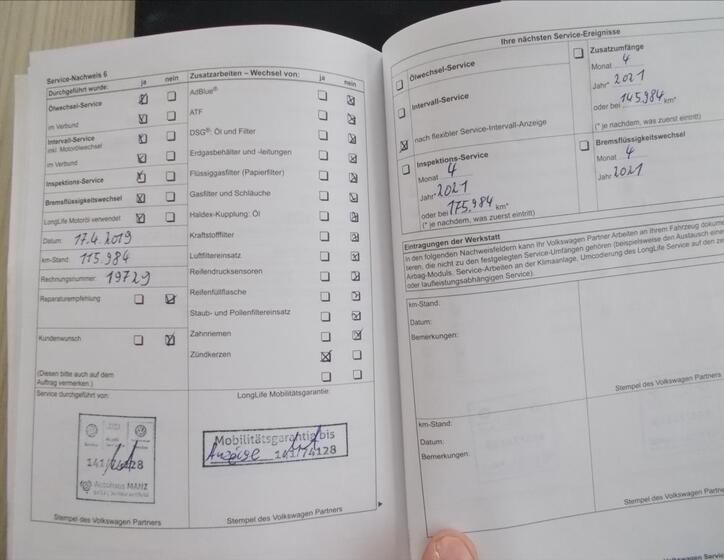 Service-Nachweis 6
Durchgeführt wurde: ja nein
Ölwechsel-Service
im Verbund
Intervall-Service
inkl. Motorölwechsel
im Verbund
Inspektions-Service
Bremsflüssigkeitswechsel
LongLife Motoröl verwendet
Datum: 17.4.2019
km-Stand: 115.984
Rechnungsnummer: 19729
Reparaturempfehlung
Kundenwunsch
(Diesen bitte auch auf dem
Auftrag vermerken.)
Service durchgeführt von:
Autohaus MANZ
Stempel des Volkswagen Partners
Zusatzarbeiten – Wechsel von: ja nein
AdBlue®
ATF
DSG®: Öl und Filter
Erdgasbehälter und -leitungen
Flüssiggasfilter (Papierfilter)
Gasfilter und Schläuche
Haldex-Kupplung: Öl
Kraftstofffilter
Luftfiltereinsatz
Reifendrucksensoren
Reifenfüllflasche
Staub- und Pollenfiltereinsatz
Zahnriemen
Zündkerzen
LongLife Mobilitätsgarantie:
Mobilitätsgarantie bis
Anzeige
Stempel des Volkswagen Partners
Ihre nächsten Service-Ereignisse
Ölwechsel-Service
Intervall-Service
nach flexibler Service-Intervall-Anzeige
Inspektions-Service
Monat 4
Jahr* 2021
oder bei 175.984 km*
(* je nachdem, was zuerst eintritt)
Zusatzumfänge
Monat 4
Jahr* 2021
oder bei 145.984 km*
(* je nachdem, was zuerst eintritt)
Bremsflüssigkeitswechsel
Monat 4
Jahr 2021
Eintragungen der Werkstatt
In den folgenden Nachweisfeldern kann Ihr Volkswagen Partner Arbeiten an Ihrem Fahrzeug
teren, die nicht zu den festgelegten Service-Umfängen gehören (beispielsweise den Austausch
Airbag-Moduls, Service-Arbeiten an der Klimaanlage, Umcodierung des LongLife Service auf den
oder laufleistungsabhängigen Service).
km-Stand:
Datum:
Bemerkungen:
Stempel des Volkswagen Partners
km-Stand:
Datum:
Bemerkungen:
Stempel des Volkswagen Partners